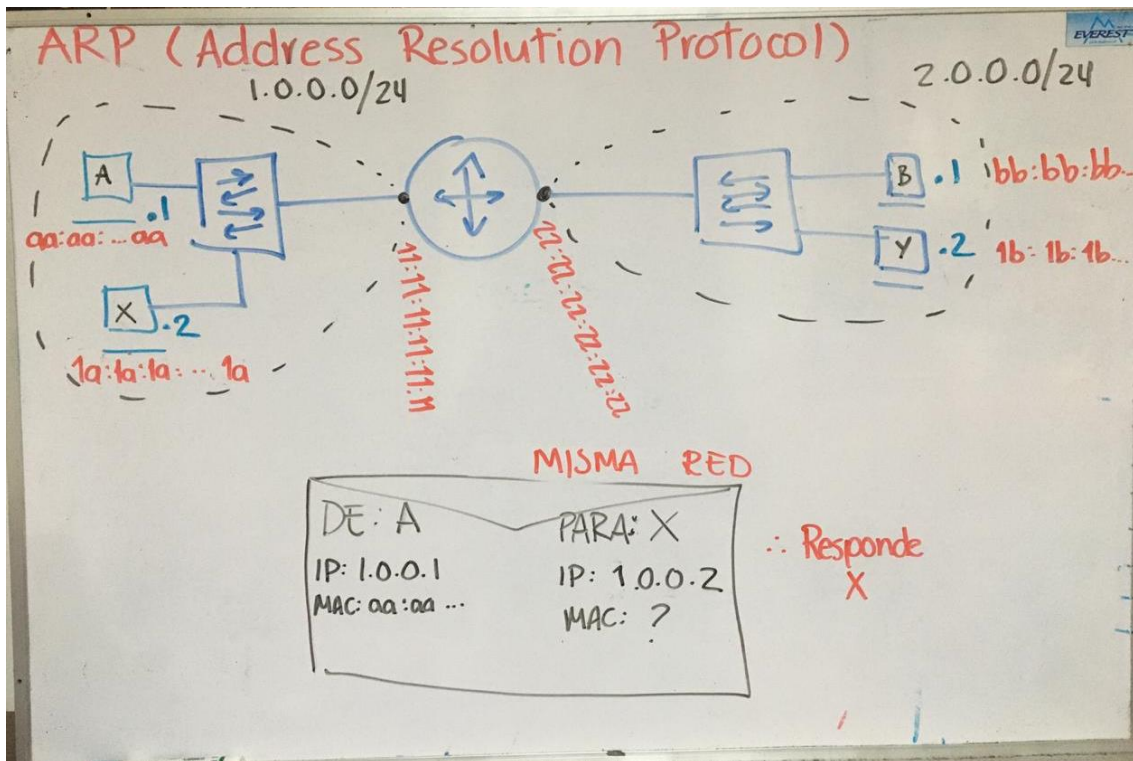 ARP (Address Resolution Protocol)
EVEREST
1.0.0.0/24
2.0.0.0/24
A
.1
aa:aa:...aa
X
.2
1a:1a:1a:...1a
11:11:11:11:11:11
22:22:22:22:22:22
B
.1
bb:bb:bb...
Y
.2
1b:1b:1b...
MISMA RED
DE: A
IP: 1.0.0.1
MAC: aa:aa ...
PARA: X
IP: 1.0.0.2
MAC: ?
∴ Responde
X